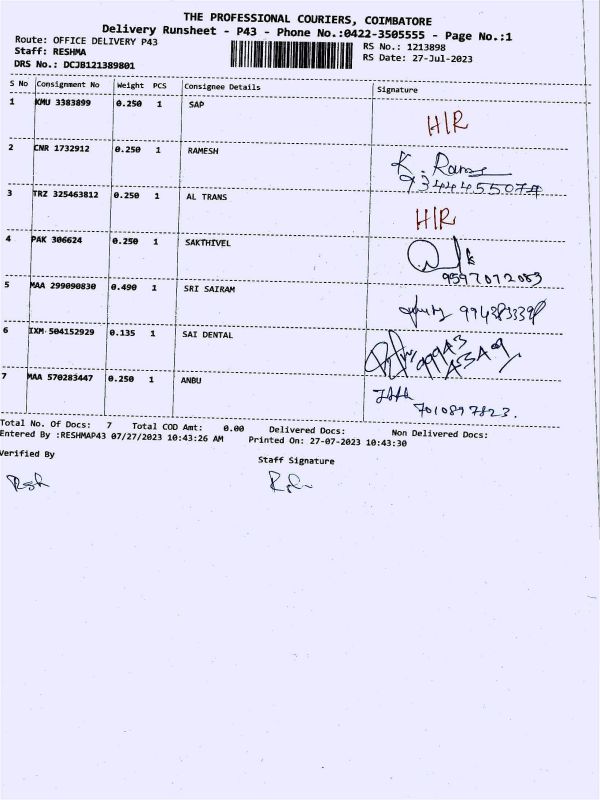 THE PROFESSIONAL COURIERS, COIMBATORE
Delivery Runsheet - P43 - Phone No.:0422-3505555 - Page No.:1
Route: OFFICE DELIVERY P43 RS No.: 1213898
Staff: RESHMA RS Date: 27-Jul-2023
DRS No.: DCJB121389801
S No Consignment No Weight PCS Consignee Details Signature
1 KMU 3383899 0.250 1 SAP H/R
2 CNR 1732912 0.250 1 RAMESH K. Rames
9344455074
3 TRZ 325463812 0.250 1 AL TRANS H/R
4 PAK 306624 0.250 1 SAKTHIVEL
9597072083
5 MAA 299090830 0.490 1 SRI SAIRAM
6 IXM 504152929 0.135 1 SAI DENTAL
7 MAA 570283447 0.250 1 ANBU
7010897823.
Total No. Of Docs: 7 Total COD Amt: 0.00 Delivered Docs: Non Delivered Docs:
Entered By :RESHMAP43 07/27/2023 10:43:26 AM Printed On: 27-07-2023 10:43:30
Verified By Staff Signature